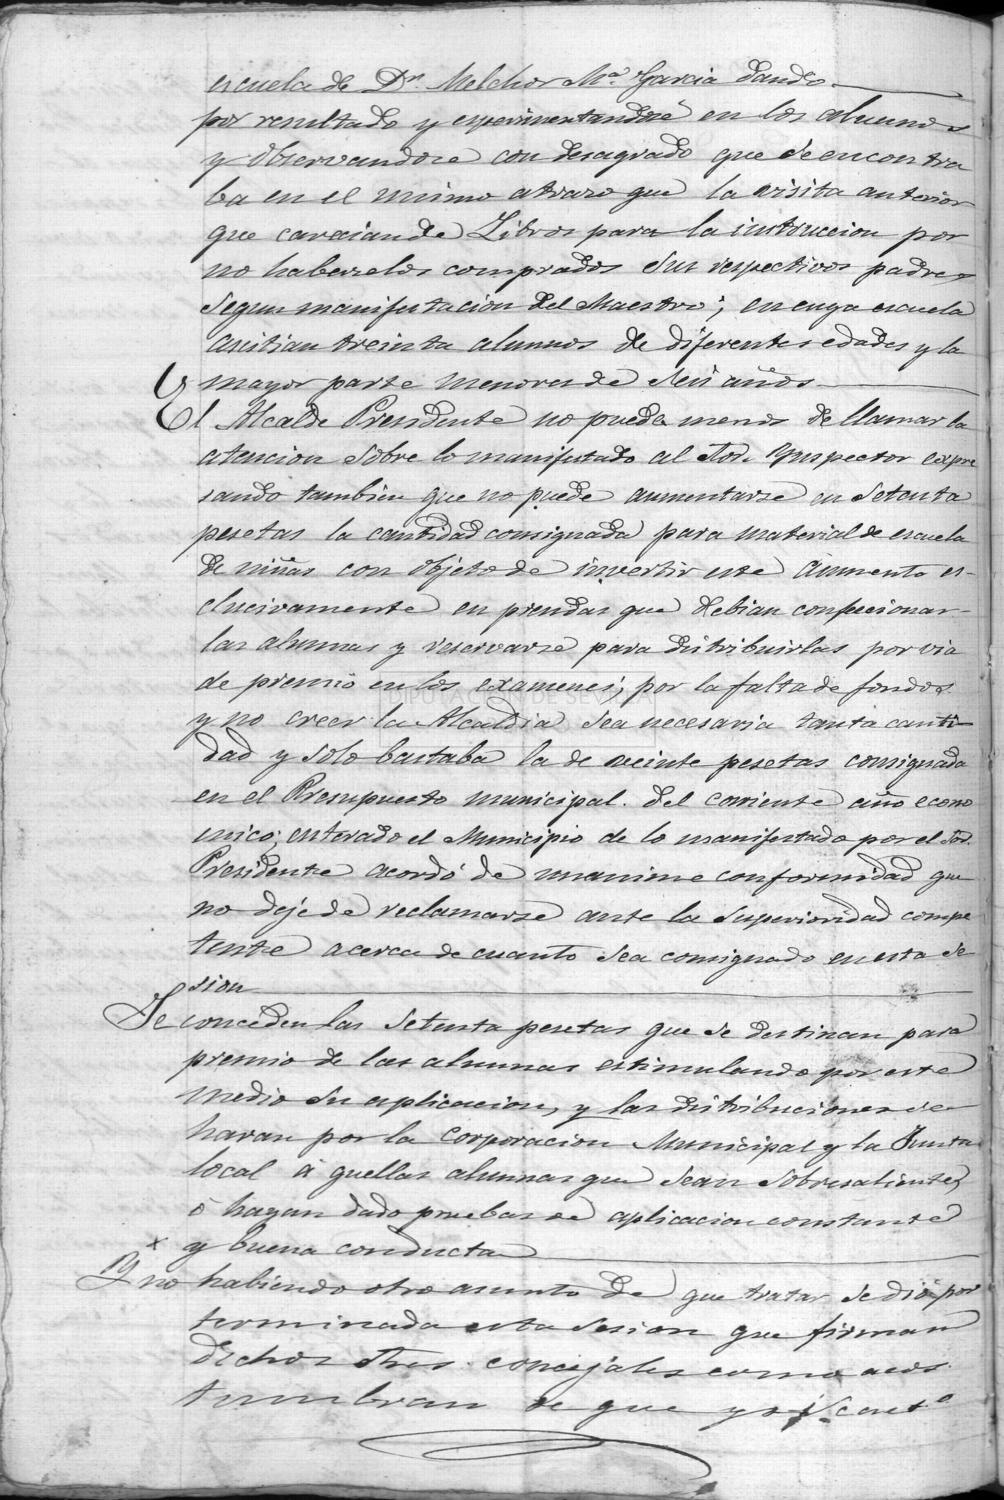 escuela de Dn. Melchor Ma. Garcia dando
por resultado y esperimentandose en los alumnos
y observandose con desagrado que se encontra
ba en el mismo atrazo que la visita anterior
que careciande Libros para la instruccion por
no haberzelos comprados sus respectivos padres
segun manifestacion del Maestro; en cuya escuela
asistian treinta alumnos de diferentes edades y la
mayor parte menores de seis años
El Alcalde Presidente no puede menos de llamar la
atencion sobre lo manifestado al Sor. Ynspector expre
sando tambien que no puede aumentarse en setenta
pesetas la cantidad consignada para material de escuela
de niñas con objeto de invertir este aumento es-
clucivamente en prendas que debian confeccionar
las alumnas y reservarse para distribuirlas por via
de premio en los examenes; por la falta de fondos
DIPUTACIÓN DE SEVILLA
y no creer la Alcaldia sea necesaria tanta canti-
dad y solo bastaba la de veinte pesetas consignada
en el Presupuesto municipal del corriente año econo
mico; enterado el Municipio de lo manifestado por el Sor.
Presidente acordó de unanime conformidad que
no deje de reclamarse ante la Superioridad compe
tente acerca de cuanto sea consignado en esta se
sion
Se conceden las setenta pesetas que se destinan para
premio de las alumnas estimulando por este
medio su aplicacion, y las distribuciones se
haran por la Corporacion Municipal y la Junta
local á quellas alumnas que sean sobresalientes,
ó hayan dado pruebas de aplicacion constante
y buena conducta
Y no habiendo otro asunto de que tratar se dió por
terminada esta sesion que firman
dichos Sres. concejales como acos
tumbran de que yo el Secreto